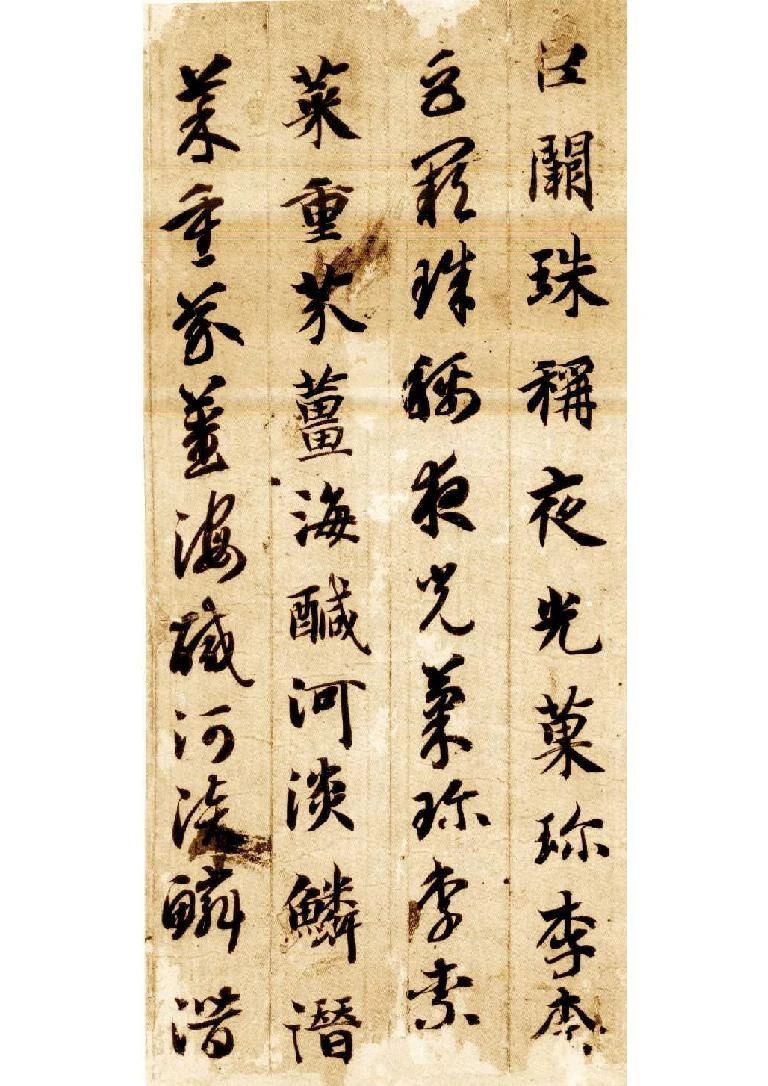 巨闕珠稱夜光菓珍李柰
巨闕珠稱夜光菓珍李柰
菜重芥薑海醎河淡鱗潛
菜重芥薑海醎河淡鱗潛